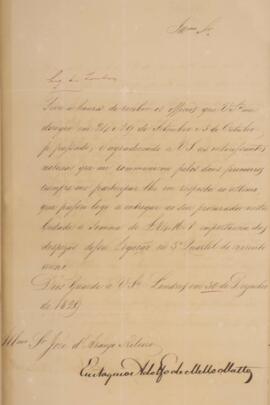 Illmo Sr.
Leg. em Londres
Tive a honra de receber os officios que V. Sa. me
dirigio em 24 e 29 de Setembro e 5 de Outubro
p. passado, e agradecendo a V. S. as
noticias que me communica pelos dous primeiros
cumpre-me participar lhe em resposta ao ultimo
que passou logo a entregar ao seu procurador nesta
Cidade a Somma de importancia das
despezas dessa Legação no 3º Quartel do corrente
anno.
Deos Guarde a V. Sa. Londres em 30 de Dezembro
de 1829
Illmo Sr. Jose d'Araujo Ribeiro
Eustaquio Adolfo de Mello Mattos